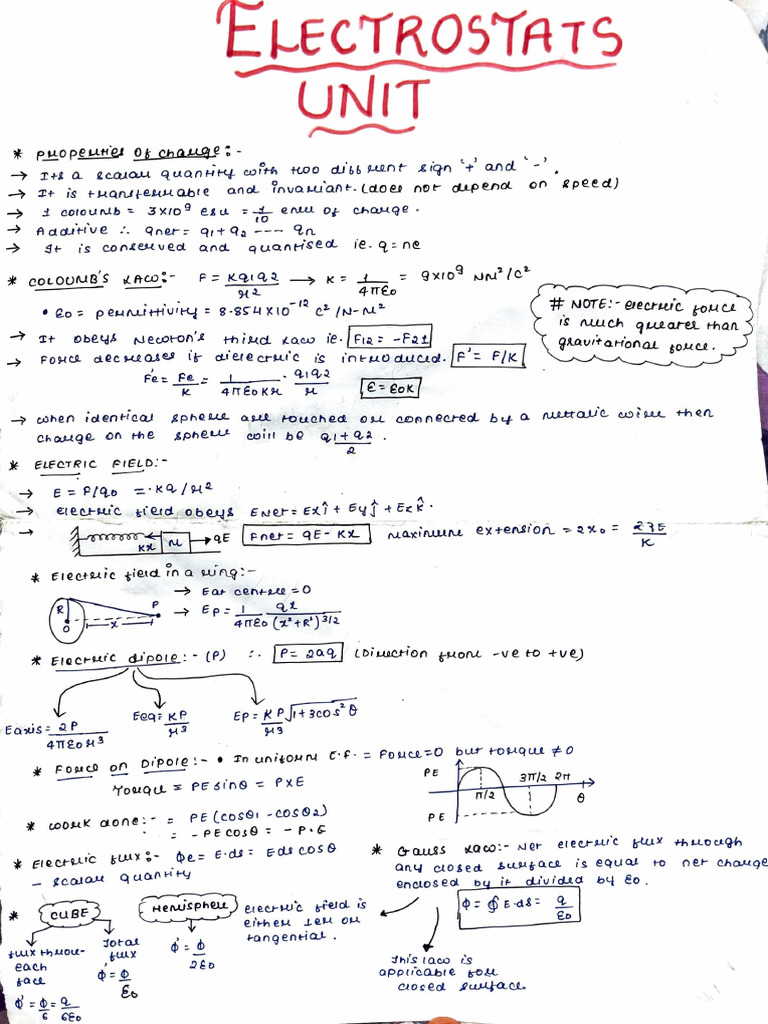 ELECTROSTATS
UNIT
* Properties of charge:-
→ Its a scalar quantity with too different sign '+' and '-'.
→ It is transferrable and invariant. (does not depend on speed)
→ 1 coloumb = 3×10⁹ esu = 1/10 emu of charge.
→ Additive ∴ qnet = q1+q2 ---- qn
→ It is conserved and quantised ie. q = ne
* COLOUMB'S LAW:- F = Kq1q2/r² → K = 1/4πε0 = 9×10⁹ Nm²/C²
• ε0 = permittivity = 8.854×10⁻¹² C²/N-M²
# NOTE:- electric force is much greater than gravitational force.
→ It obeys Newton's third law ie. F12 = -F21
→ Force decreases if dielectric is introduced. F' = F/K
Fe' = Fe/K = 1/4πε0Kr · q1q2/r ε = ε0K
→ when identical sphere are touched or connected by a mettalic wire then
charge on the sphere will be q1+q2/2
* ELECTRIC FIELD:-
→ E = F/q0 = ·Kq/r²
→ electric field obeys Enet = Exî + Eyĵ + Ezk̂.
→ Kx M → qE Fnet = qE - Kx maximum extension = 2x0 = 2qE/K
* Electric field in a ring:-
→ E at centre = 0
R O x P → Ep = 1/4πε0 qx/(x²+R²)^3/2
* Electric dipole:- (P) ∴ P = 2aq (Direction from -ve to +ve)
Eaxis = 2P/4πε0r³ Eeq = KP/r³ Ep = KP/r³ √1+3cos²θ
* Force on Dipole:- • In uniform E.f. = Force=0 but torque ≠ 0
Torque = PE sinθ = P×E
PE π/2 3π/2 2π θ PE
* work done:- = PE(cosθ1 - cosθ2)
= -PE cosθ = -P·E
* Electric flux:- Φe = E·ds = Eds cosθ
- scalar quantity
* Gauss Law:- Net electric flux through
any closed surface is equal to net charge
enclosed by it divided by ε0.
Φ = ∮E·ds = q/ε0
electric field is
either ter or
tangential.
This law is
applicable for
closed surface.
* CUBE
flux throu-
each
face
Φ' = Φ/6 = q/6ε0
Total
flux
Φ' = Φ/ε0
Hemisphere
Φ' = Φ/2ε0